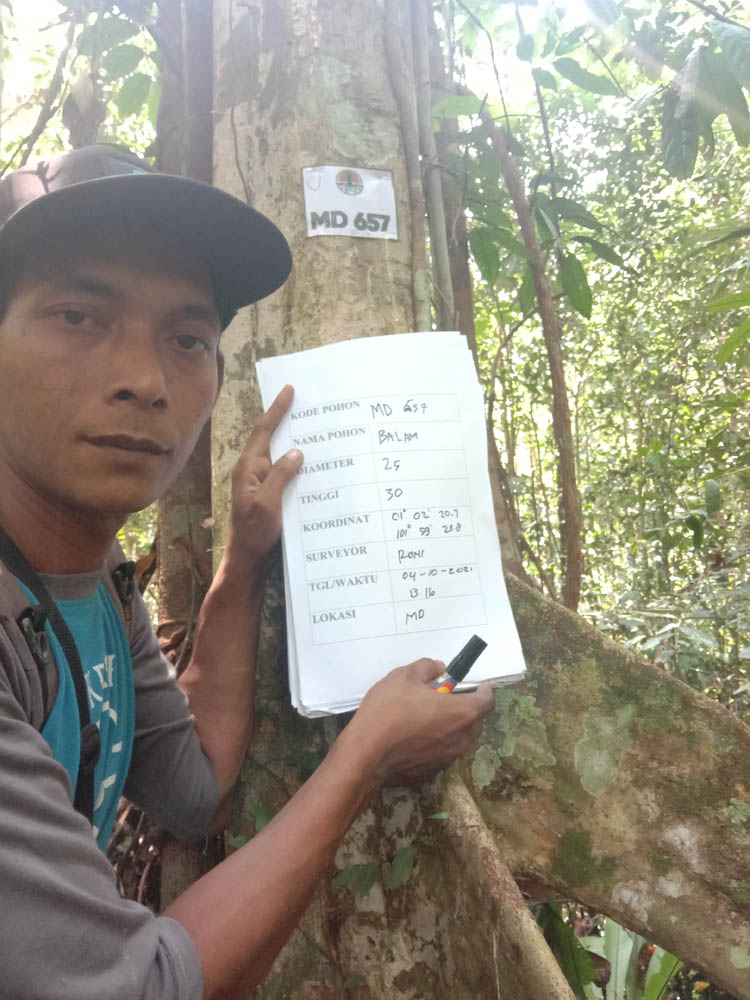 MD 657
KODE POHON MD 657
NAMA POHON BALAM
DIAMETER 25
TINGGI 30
KOORDINAT 01° 02' 20.7
101° 59' 28.8
SURVEYOR RONI
TGL/WAKTU 04-10-2021
13.16
LOKASI MD